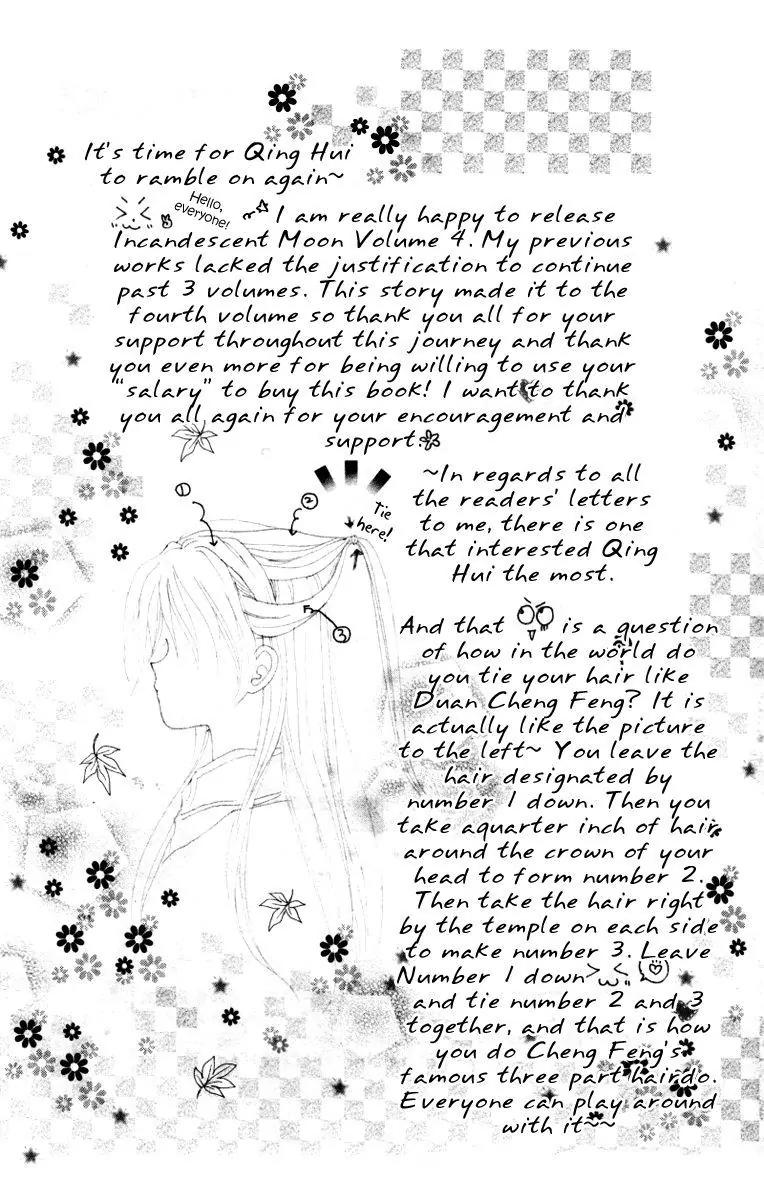 It's time for Qing Hui
to ramble on again~
Hello,
everyone!
I am really happy to release
Incandescent Moon Volume 4. My previous
works lacked the justification to continue
past 3 volumes. This story made it to the
fourth volume so thank you all for your
support throughout this journey and thank
you even more for being willing to use your
"salary" to buy this book! I want to thank
you all again for your encouragement and
support.
①
②
Tie
here!
③
~In regards to all
the readers' letters
to me, there is one
that interested Qing
Hui the most.
And that is a question
of how in the world do
you tie your hair like
Duan Cheng Feng? It is
actually like the picture
to the left~ You leave the
hair designated by
number 1 down. Then you
take aquarter inch of hair
around the crown of your
head to form number 2.
Then take the hair right
by the temple on each side
to make number 3. Leave
Number 1 down
and tie number 2 and 3
together, and that is how
you do Cheng Feng's
famous three part hairdo.
Everyone can play around
with it~~